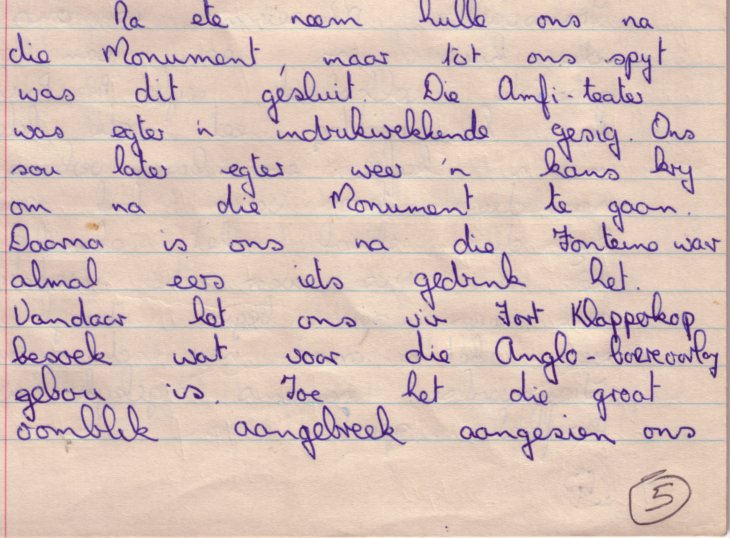 Na ete neem hulle ons na
die Monument, maar tot ons spyt
was dit gesluit. Die Amfi-teater
was egter 'n indrukwekkende gesig. Ons
sou later egter weer 'n kans kry
om na die Monument te gaan.
Daarna is ons na die Fonteine waar
almal eers iets gedrink het.
Vandaar het ons vir Fort Klapperkop
besoek wat voor die Anglo-boereoorlog
gebou is. Toe het die groot
oomblik aangebreek aangesien ons
5